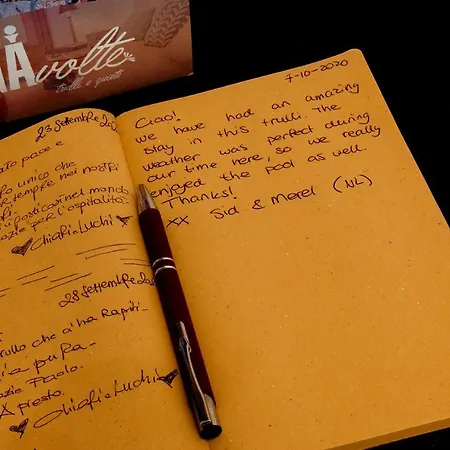 Avolte
trulli e quieti
23 Settembre 20
pace e
unico che
sempre nei nostri
nel mondo
per l'ospitalità
Chiafi e Luchi
28 Settembre 20
che ci ha Rapiti
pura
Paolo.
A presto.
Chiafi e Luchi
7-10-2020
Ciao!
we have had an amazing
stay in this trulli. The
weather was perfect during
our time here, so we really
enjoyed the pool as well.
Thanks!
xx Sid & Merel (NL)